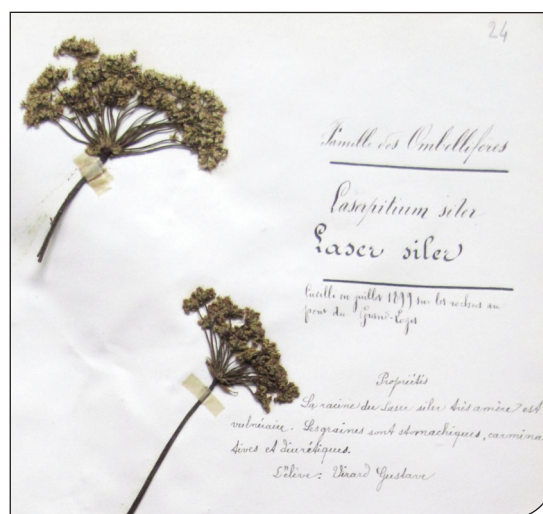 24
Famille des Ombellifères
Laserpitium siler
Laser siler
Cueilli en juillet 1899 sur les rochers au
pont du Grand-Loges
Propriétés
La racine du Laser siler très amère est
vulnéraire. Les graines sont stomachiques, carmina
tives et diurétiques.
L'élève : Virard Gustave